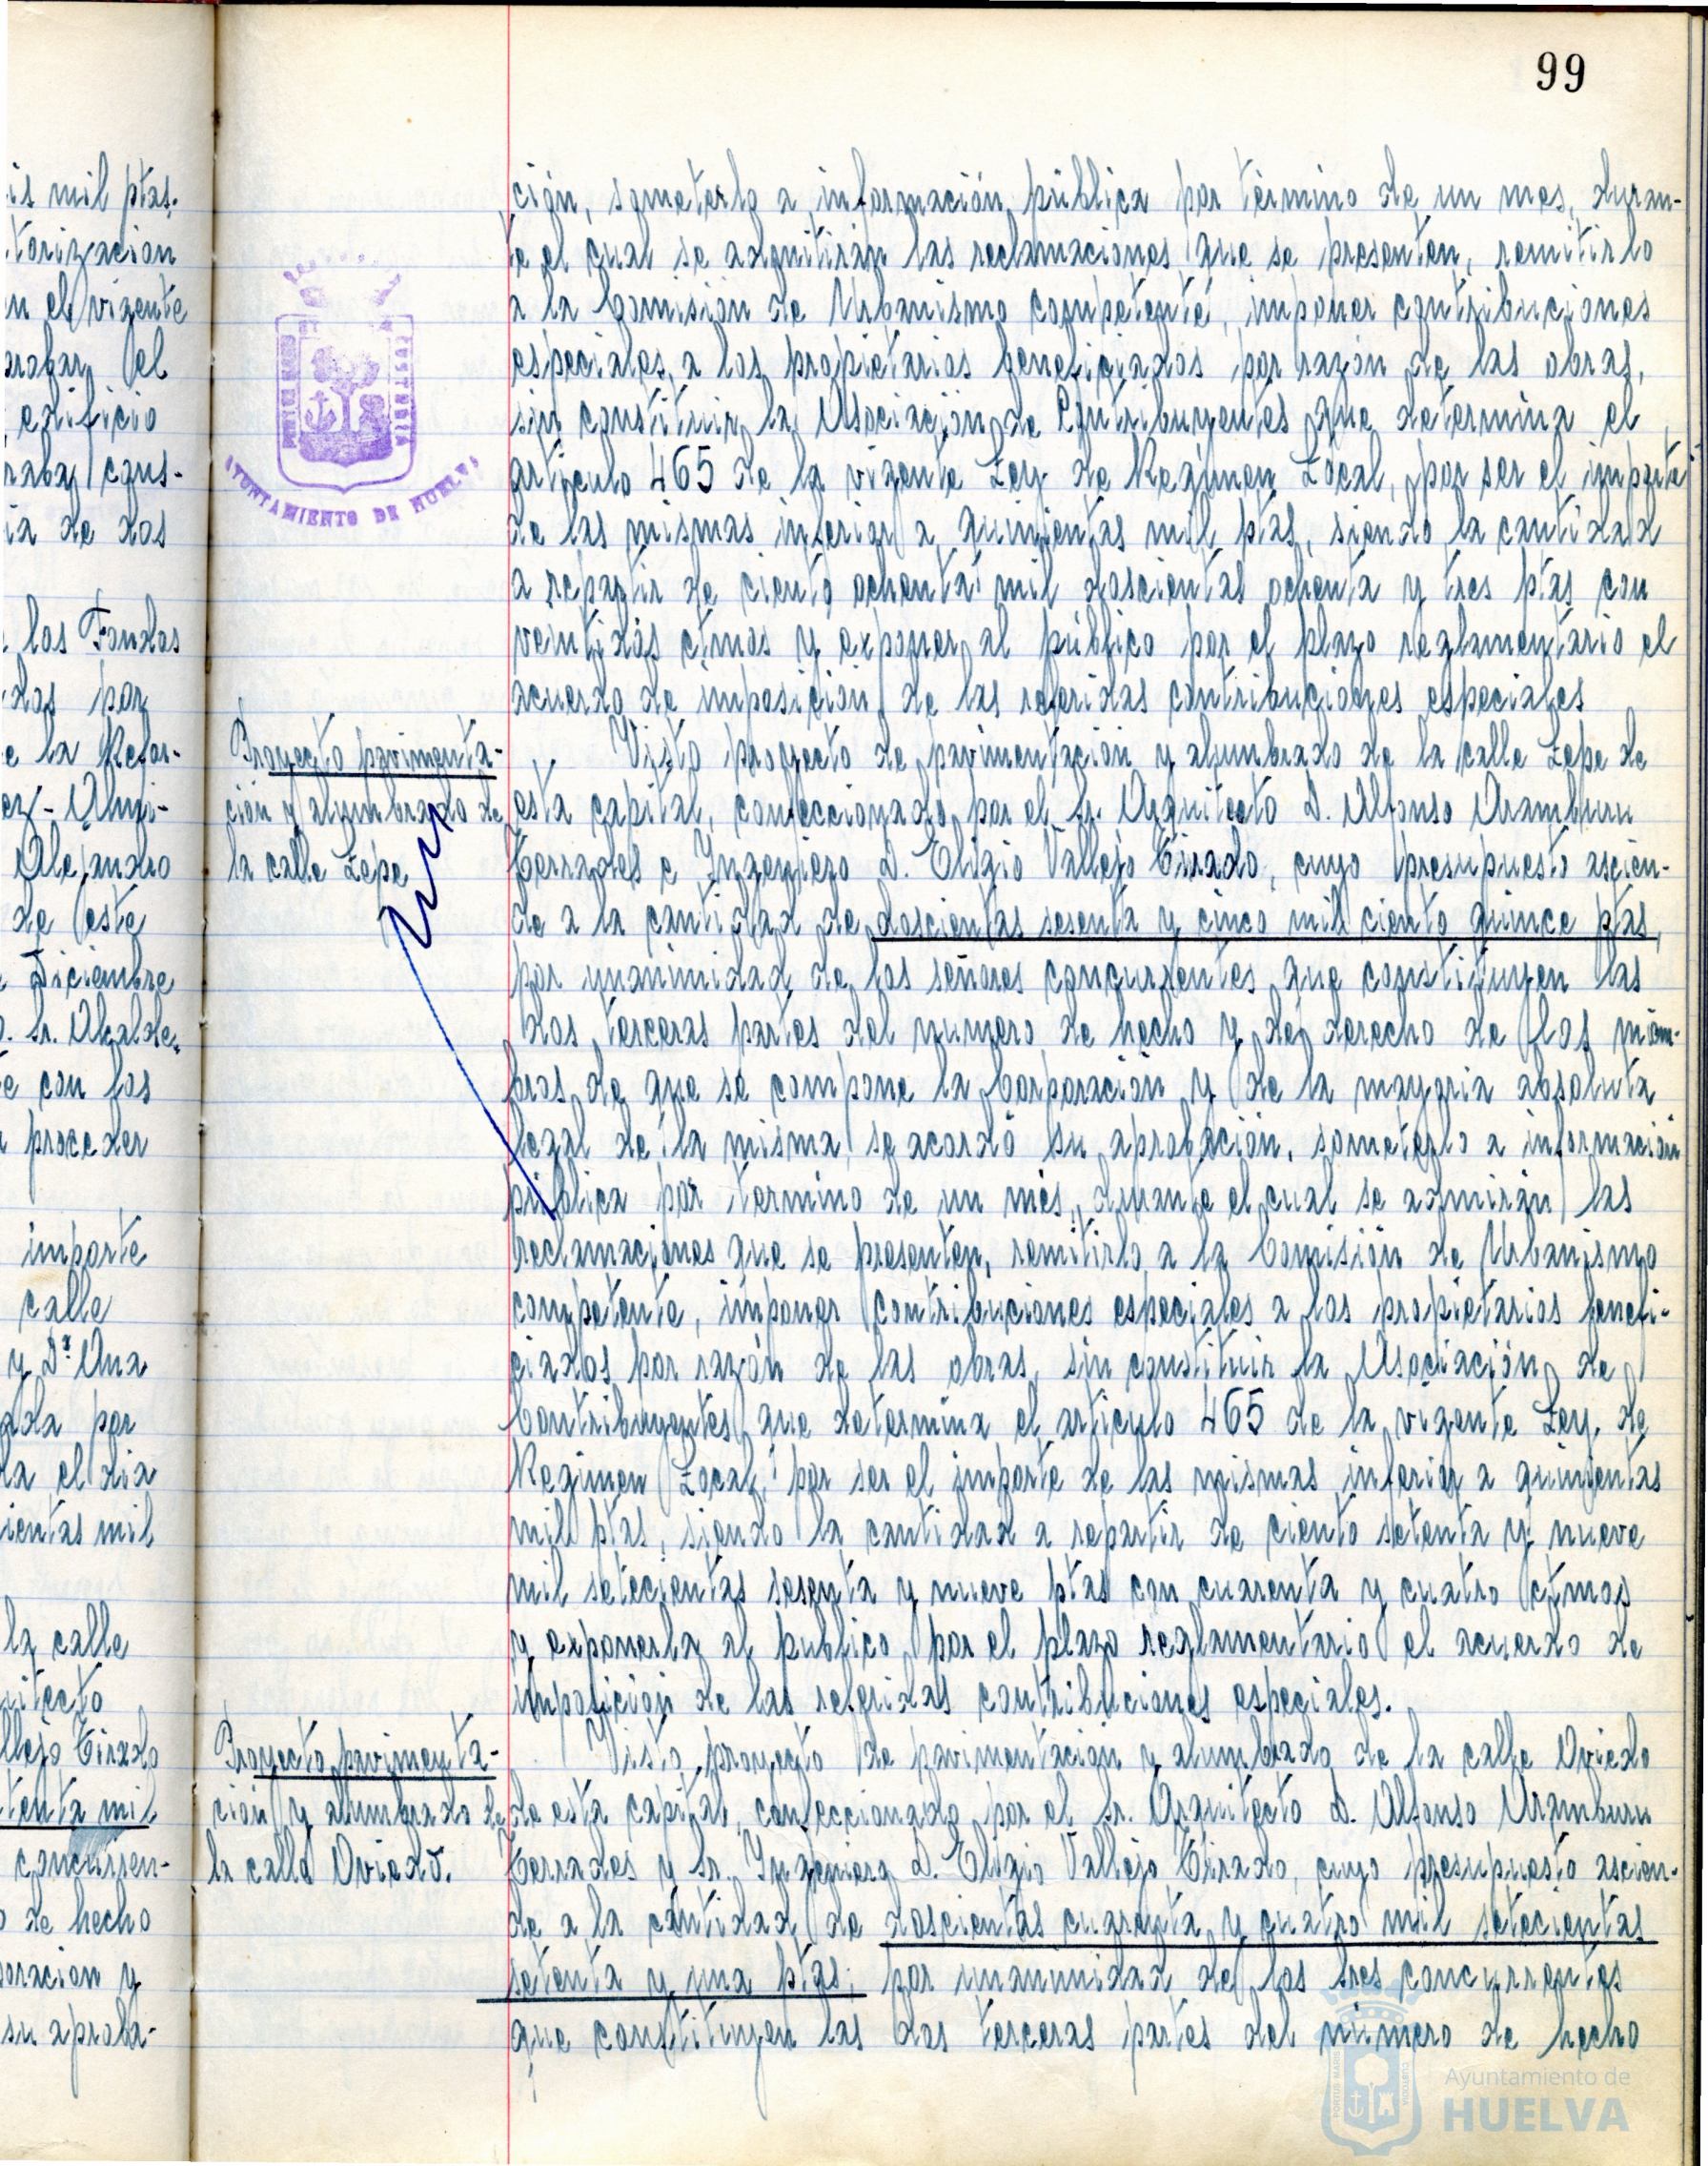 99
is mil ptas.
torizacion
n el vigente
probar el
edificio
raba cons-
ia de dos
los Fondos
das por
e la Refor-
ez-Olmi-
Alejandro
de este
Diciembre
. Sr. Alcalde.
e con los
proceder
importe
calle
y Dª Ana
ada por
la el dia
ientas mil
la calle
uitecto
llejo Tirado
tenta mil
concurren-
o de hecho
poracion y
su aproba-
PORTUS MARIS
CUSTODIA
AYUNTAMIENTO DE HUELVA
ción, someterlo a información pública por término de un mes, duran-
te el cual se admitirán las reclamaciones que se presenten, remitirlo
a la Comisión de Urbanismo competente, imponer contribuciones
especiales a los propietarios beneficiados por razón de las obras,
sin constituir la Asociación de Contribuyentes que determina el
artículo 465 de la vigente Ley de Regimen Local, por ser el importe
de las mismas inferior a quinientas mil ptas, siendo la cantidad
a repartir de ciento ochenta mil doscientas ochenta y tres ptas con
veintidós ctmos y exponer al público por el plazo reglamentario el
acuerdo de imposición de las referidas contribuciones especiales
Proyecto pavimenta-
ción y alumbrado de
la calle Lepe
Visto proyecto de pavimentación y alumbrado de la calle Lepe de
esta capital, confeccionado por el Sr. Arquitecto D. Alfonso Aramburu
Terrades e Ingeniero D. Eligio Vallejo Tirado, cuyo presupuesto ascien-
de a la cantidad de doscientas sesenta y cinco mil ciento quince ptas,
por unanimidad de los señores concurrentes que constituyen las
dos terceras partes del numero de hecho y de derecho de los miem-
bros de que se compone la Corporación y de la mayoria absoluta
legal de la misma, se acordó su aprobación, someterlo a información
pública por termino de un mes, durante el cual se admirán las
reclamaciones que se presenten, remitirlo a la Comisión de Urbanismo
competente, imponer contribuciones especiales a los propietarios benefi-
ciados por razón de las obras, sin constituir la Asociación de
Contribuyentes que determina el artículo 465 de la vigente Ley de
Regimen Local, por ser el importe de las mismas inferior a quinientas
mil ptas, siendo la cantidad a repartir de ciento setenta y nueve
mil setecientas sesenta y nueve ptas con cuarenta y cuatro ctmos
y exponerla al publico por el plazo reglamentario el acuerdo de
imposición de las referidas contribuciones especiales.
Proyecto pavimenta-
ción y alumbrado de
la calle Oviedo.
Visto proyecto de pavimentación y alumbrado de la calle Oviedo
de esta capital, confeccionado por el Sr. Arquitecto D. Alfonso Aramburu
Terrades y Sr. Ingeniero D. Eligio Vallejo Tirado, cuyo presupuesto ascien-
de a la cantidad de doscientas cuarenta y cuatro mil setecientas
setenta y una ptas, por unanimidad de los Sres concurrentes
que constituyen las dos terceras partes del número de hecho
Ayuntamiento de
HUELVA